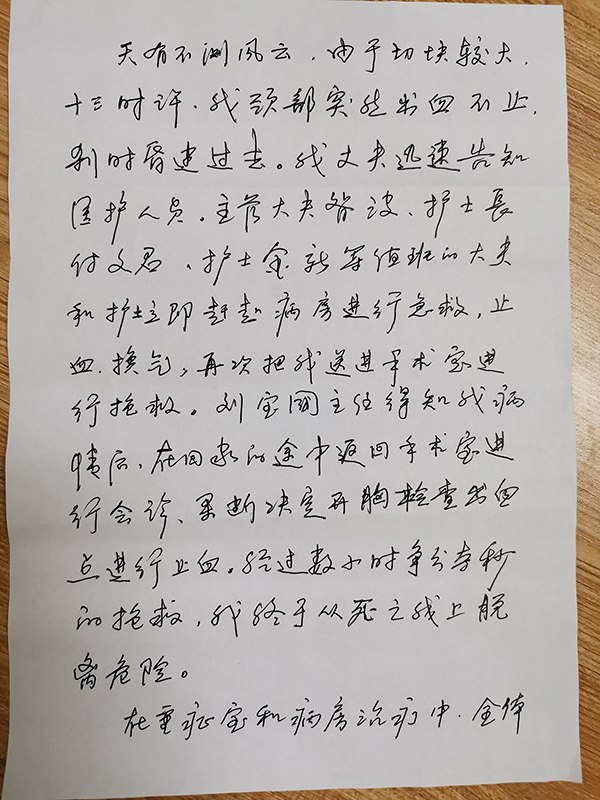 天有不测风云，由于切块较大，
十三时许，我颈部突然出血不止，
刹时昏迷过去。我丈夫迅速告知
医护人员。主管大夫咎波、护士長
付文君、护士金新等值班的大夫
和护士立即赶赴病房进行急救，止
血、换气，再次把我送进手术室进
行抢救。刘宝国主任得知我病
情后，在回家的途中返回手术室进
行会诊、果断决定开胸检查出血
点进行止血。经过数小时争分夺秒
的抢救，我终于从死亡线上脱
离危险。
在重症室和病房治疗中，全体